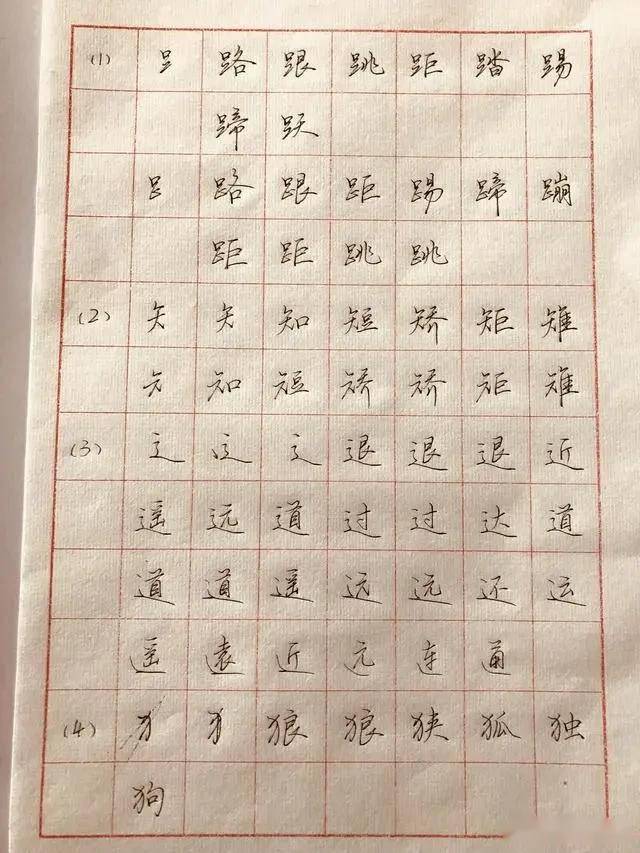 (1) 𧾷 路 跟 跳 距 踏 踢
蹄 跃
𧾷 路 跟 距 踢 蹄 蹦
距 距 跳 跳
(2) 矢 矢 知 短 矫 矩 雉
矢 知 短 矫 矫 矩 雉
(3) 辶 辶 辶 退 退 退 近
遥 远 道 过 过 达 道
道 道 遥 远 远 还 运
遥 遠 近 远 连 通
(4) 犭 犭 狼 狼 狭 狐 独
狗